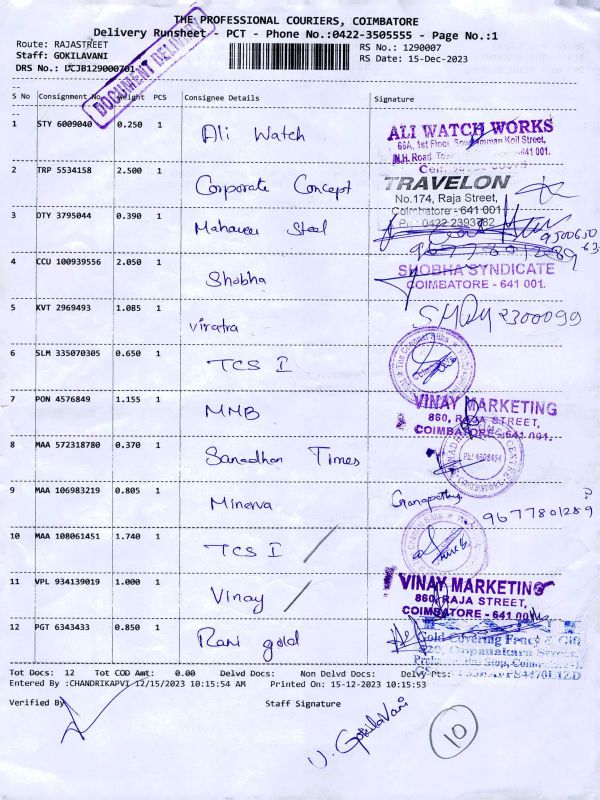 THE PROFESSIONAL COURIERS, COIMBATORE
Delivery Runsheet - PCT - Phone No.:0422-3505555 - Page No.:1
Route: RAJASTREET RS No.: 1290007
Staff: GOKILAVANI RS Date: 15-Dec-2023
DRS No.:
DOCUMENT DELIVERY
S No Consignment No. Weight PCS Consignee Details Signature
1 STY 6009040 0.250 1 Ali Watch
ALI WATCH WORKS
66A, 1st Floor,
Koil Street,
M.H. Road
641 001.
2 TRP 5534158 2.500 1 Corporate Concept
TRAVELON
No.174, Raja Street,
Coimbatore - 641 001
Ph : 0422 2393782
3 OTY 3795044 0.390 1 Mahaveer Steel
9677801289
4 CCU 100939556 2.050 1 Shobha
SHOBHA SYNDICATE
COIMBATORE - 641 001.
5 KVT 2969493 1.085 1 Viratra
2300099
6 SLM 335070305 0.650 1 TCS I
7 PON 4576849 1.155 1 MMB
VINAY MARKETING
860, RAJA STREET,
COIMBATORE - 641 001.
8 MAA 572318780 0.370 1 Sanadhan Times
9 MAA 106983219 0.805 1 Minerva
Ganapathy
9677801289
10 MAA 108061451 1.740 1 TCS I
11 VPL 934139019 1.000 1 Vinay
VINAY MARKETING
860, RAJA STREET,
COIMBATORE - 641 001
12 PGT 6343433 0.850 1 Rani gold
Gold Covering Fancy & Gift
Oppanakara Street,
Tot Docs: 12 Tot COD Amt: 0.00 Delvd Docs: Non Delvd Docs: Delvy Pts:
Entered By :CHANDRIKAPVT 12/15/2023 10:15:54 AM Printed On: 15-12-2023 10:15:53
Verified By Staff Signature
V. GokilaVani
10